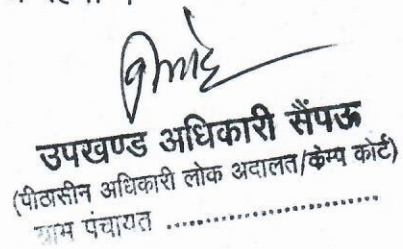 उपखण्ड अधिकारी सैंपऊ
(पीठासीन अधिकारी लोक अदालत/केम्प कोर्ट)
ग्राम पंचायत ..............................